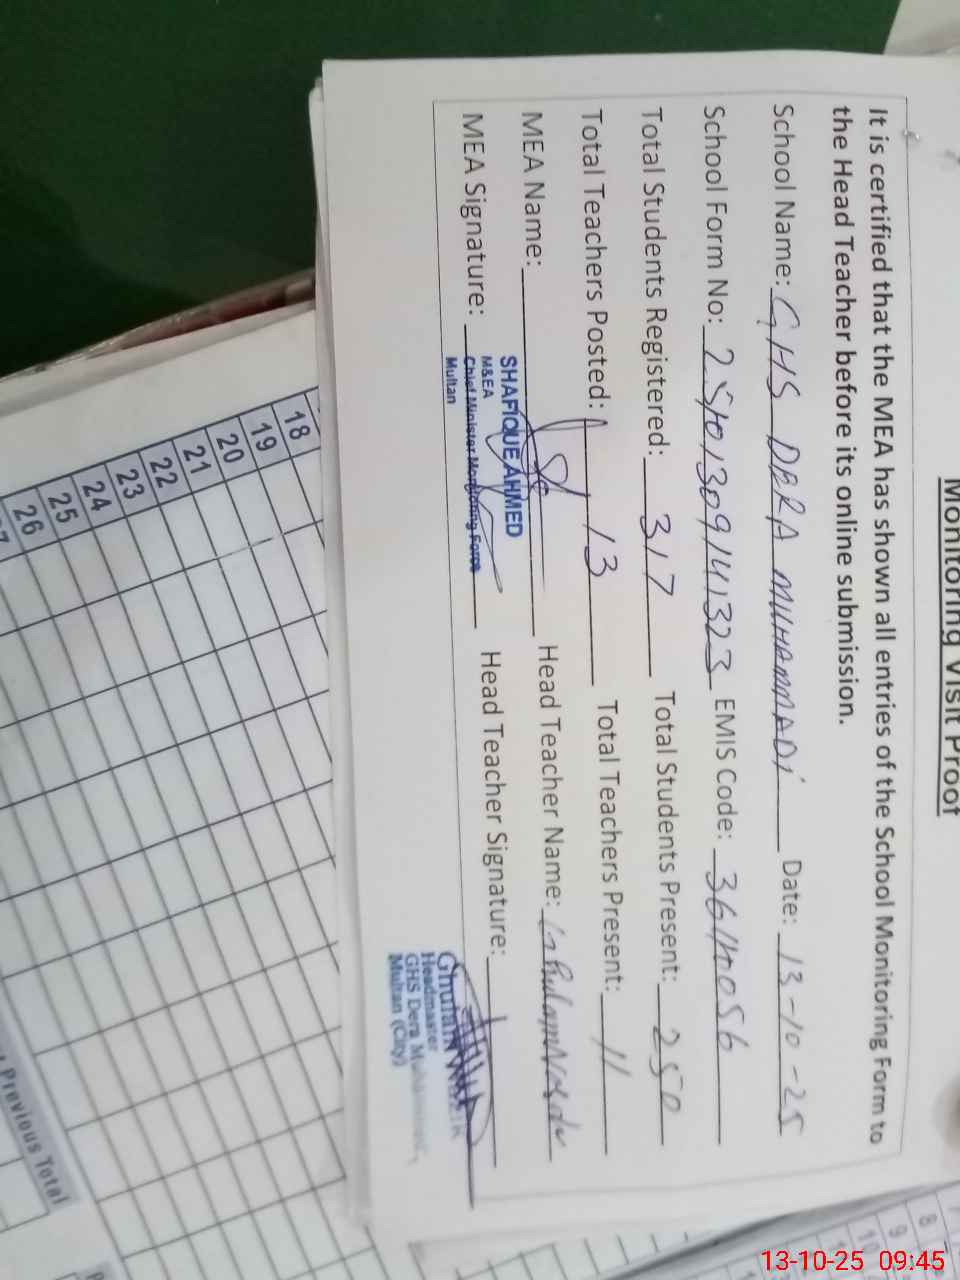 Monitoring Visit Proof
It is certified that the MEA has shown all entries of the School Monitoring Form to
the Head Teacher before its online submission.
School Name: GHS DERA MUHAMMADI Date: 13-10-25
School Form No: EMIS Code: 36140056
Total Students Registered: 317 Total Students Present: 250
Total Teachers Posted: 13 Total Teachers Present: 11
MEA Name: Head Teacher Name: Ghulam
SHAFIQUE AHMED
MEA Signature: Head Teacher Signature:
M&EA
Chief Minister Monitoring Force
Multan
Ghulam
Headmaster
GHS Dera
Multan (City)
18
19
20
21
22
23
24
25
26
Previous Total
8
9
13-10-25 09:45